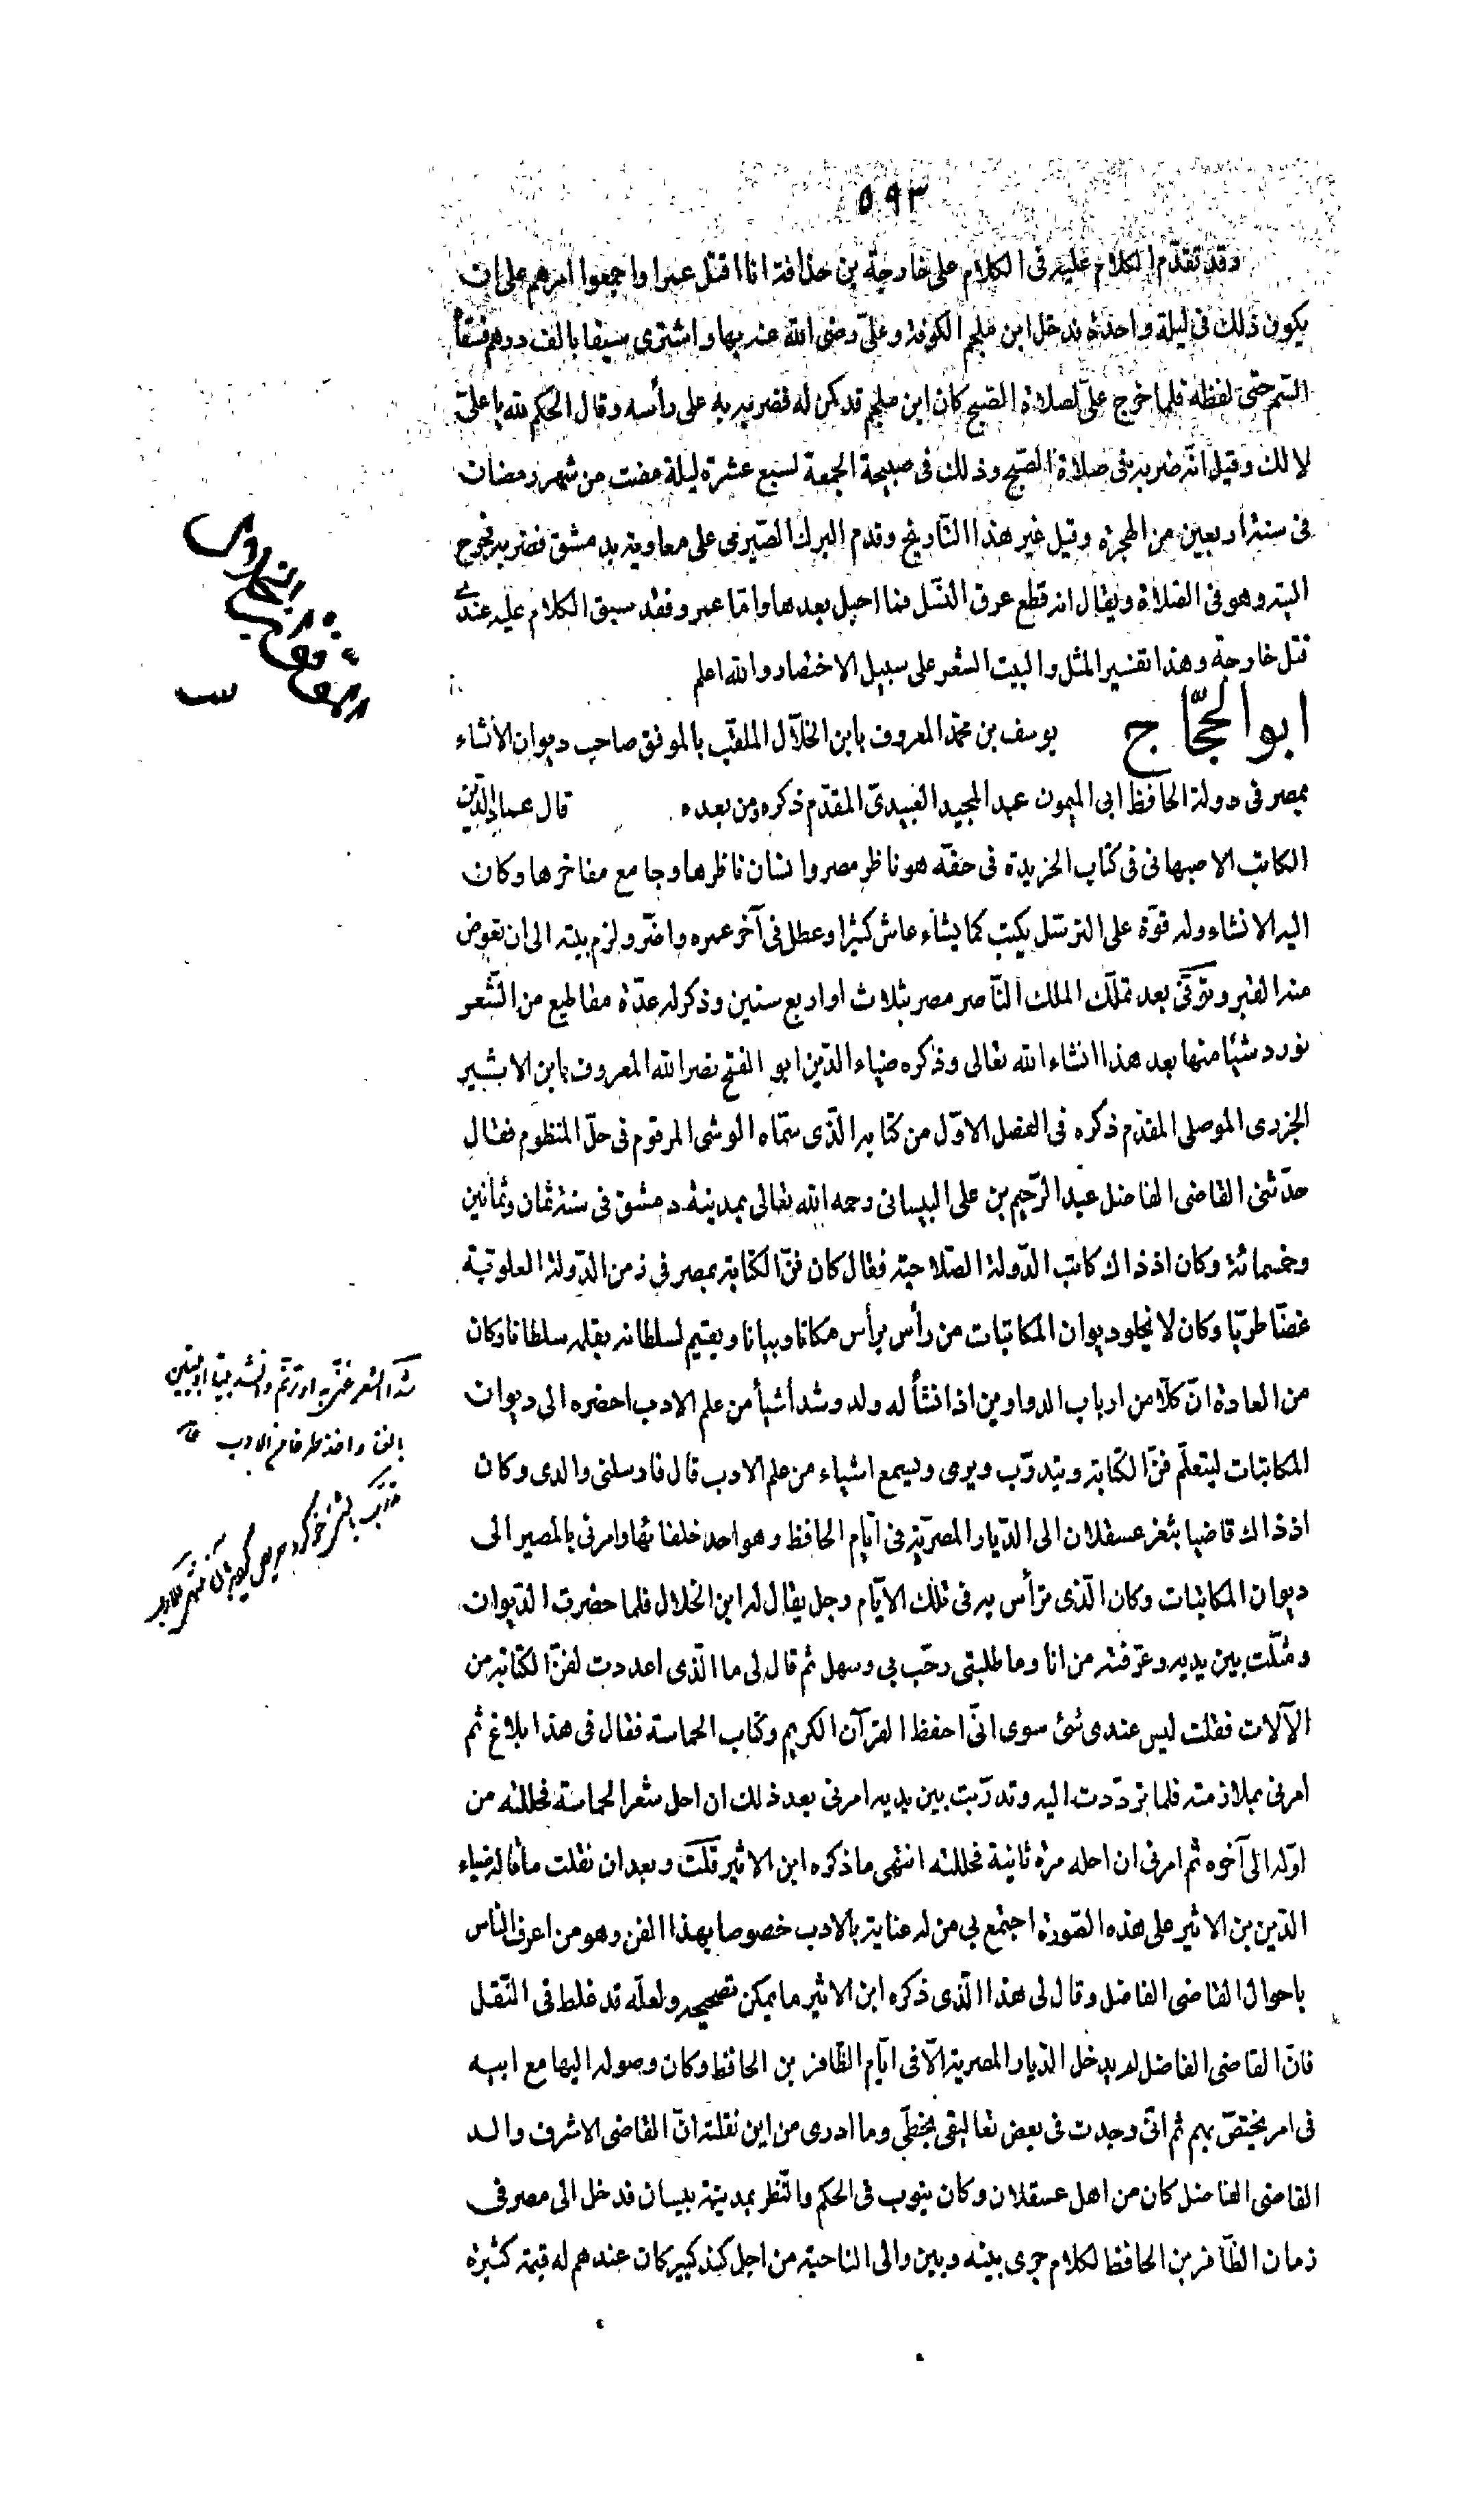 ٥٩٣
وقد تقدّم الكلام عليه فى الكلام على خارجة بن حذافة انا اقتل عمرا واجمعوا امرهم على ان
يكون ذلك فى ليلة واحدة فدخل ابن ملجم الكوفة وعلىّ رضى الله عنه بها واشترى سيفا بالف درهم فسقاه
السّم حتى لفظه فلما خرج علىّ لصلاة الصبح كان ابن ملجم قد كمن له فضربه به على رأسه وقال الحكم لله يا علىّ
لا لك وقيل انّه ضربه فى صلاة الصبح وذلك فى صبيحة الجمعة لسبع عشرة ليلة مضت من شهر رمضان
فى سنة اربعين من الهجرة وقيل غير هذا التاريخ وقدم البرك الصّيرمى على معاوية بدمشق فضربه فجرح
اليته وهو فى الصّلاة ويقال انه قطع عرق النسل فما احبل بعدها وامّا عمرو فقد سبق الكلام عليه عند
قتل خارجة وهذا تفسير المثل والبيت الشعر على سبيل الاختصار والله اعلم
ابو الحجّاج يوسف بن محمّد المعروف بابن الخلّال الملقّب بالموفق صاحب ديوان الانشاء
بمصر فى دولة الحافظ ابى الميمون عبد المجيد العبيدىّ المقدّم ذكره ومن بعده قال عماد الدّين
الكاتب الاصبهانى فى كتاب الخريدة فى حقّه هو ناظر مصر وانسان ناظرها وجامع مفاخرها وكان
اليه الانشاء وله قوّة على الترسّل يكتب كما يشاء عاش كثيرا وعطل فى آخر عمره واضرّ ولزم بيته الى ان تعوض
منه القبر وتوفّى بعد تملّك الملك النّاصر مصر بثلاث او اربع سنين وذكر له عدّة مقاطيع من الشّعر
نورد شيئا منها بعد هذا انشاء الله تعالى وذكره ضياء الدّين ابو الفتح نصر الله المعروف بابن الاثير
الجزرى الموصلى المقدّم ذكره فى الفصل الاوّل من كتابه الّذى سمّاه الوشى المرقوم فى حلّ المنظوم فقال
حدّثنى القاضى الفاضل عبد الرّحيم بن على البيسانى رحمه الله تعالى بمدينة دمشق فى سنة ثمان وثمانين
وخمسمائة وكان اذ ذاك كاتب الدّولة الصّلاحيّة فقال كان فنّ الكتابة بمصر فى زمن الدّولة العلويّة
غضّا طريّا وكان لا يخلو ديوان المكاتبات من رأس يرأس مكانا وبيانا ويقيم لسلطانه بقلمه سلطانا وكان
من العادة انّ كلّا من ارباب الدواوين اذا نشأ له ولد وشد أشيأ من علم الادب احضره الى ديوان
المكاتبات ليتعلّم فنّ الكتابة ويتدرّب ويرى ويسمع اشياء من علم الادب قال فارسلنى والدى وكان
اذ ذاك قاضيا بثغر عسقلان الى الدّيار المصريّة فى ايّام الحافظ وهو احد خلفائها وامرنى بالمصير الى
ديوان المكاتبات وكان الّذى يرأس به فى تلك الايّام رجل يقال له ابن الخلال فلما حضرت الدّيوان
ومثّلت بين يديه وعرّفته من انا وما طلبتى رحّب بى وسهل ثم قال لى ما الّذى اعددت لفنّ الكتابة من
الآلات فقلت ليس عندى شئ سوى انّى احفظ القرآن الكريم وكتاب الحماسة فقال فى هذا بلاغ ثم
امرنى بملازمته فلما تردّدت اليه وتدرّبت بين يديه امرنى بعد ذلك ان احل شعر الحماسة فحللته من
اوّله الى آخره ثم امرنى ان احله مرّة ثانية فحللته انتهى ما ذكره ابن الاثير قلت وبعد ان نقلت ما قاله ضياء
الدّين بن الاثير على هذه الصّورة اجتمع بى من له عناية بالادب خصوصا بهذا الفن وهو من اعرف الناس
باحوال القاضى الفاضل وقال لى هذا الّذى ذكره ابن الاثير ما يمكن تصحيحه ولعلّه قد غلط فى النّقل
فانّ القاضى الفاضل لم يدخل الدّيار المصرية الّا فى ايّام الظّافر بن الحافظ وكان وصوله اليها مع ابيه
فى امر يختصّ بهم ثم انّى وجدت فى بعض تعاليقى بخطّى وما ادرى من اين نقلته انّ القاضى الاشرف والد
القاضى الفاضل كان من اهل عسقلان وكان ينوب فى الحكم والنّظر بمدينة بيسان فدخل الى مصر فى
زمان الظّافر بن الحافظ لكلام جرى بينه وبين والى الناحية من اجل كند كبير كان عندهم له قيمة كثيرة
شدا الشعر غنّى به او ترنّم وانشد بيتا او بيتين
بالغنا واخذ طرفا من الادب